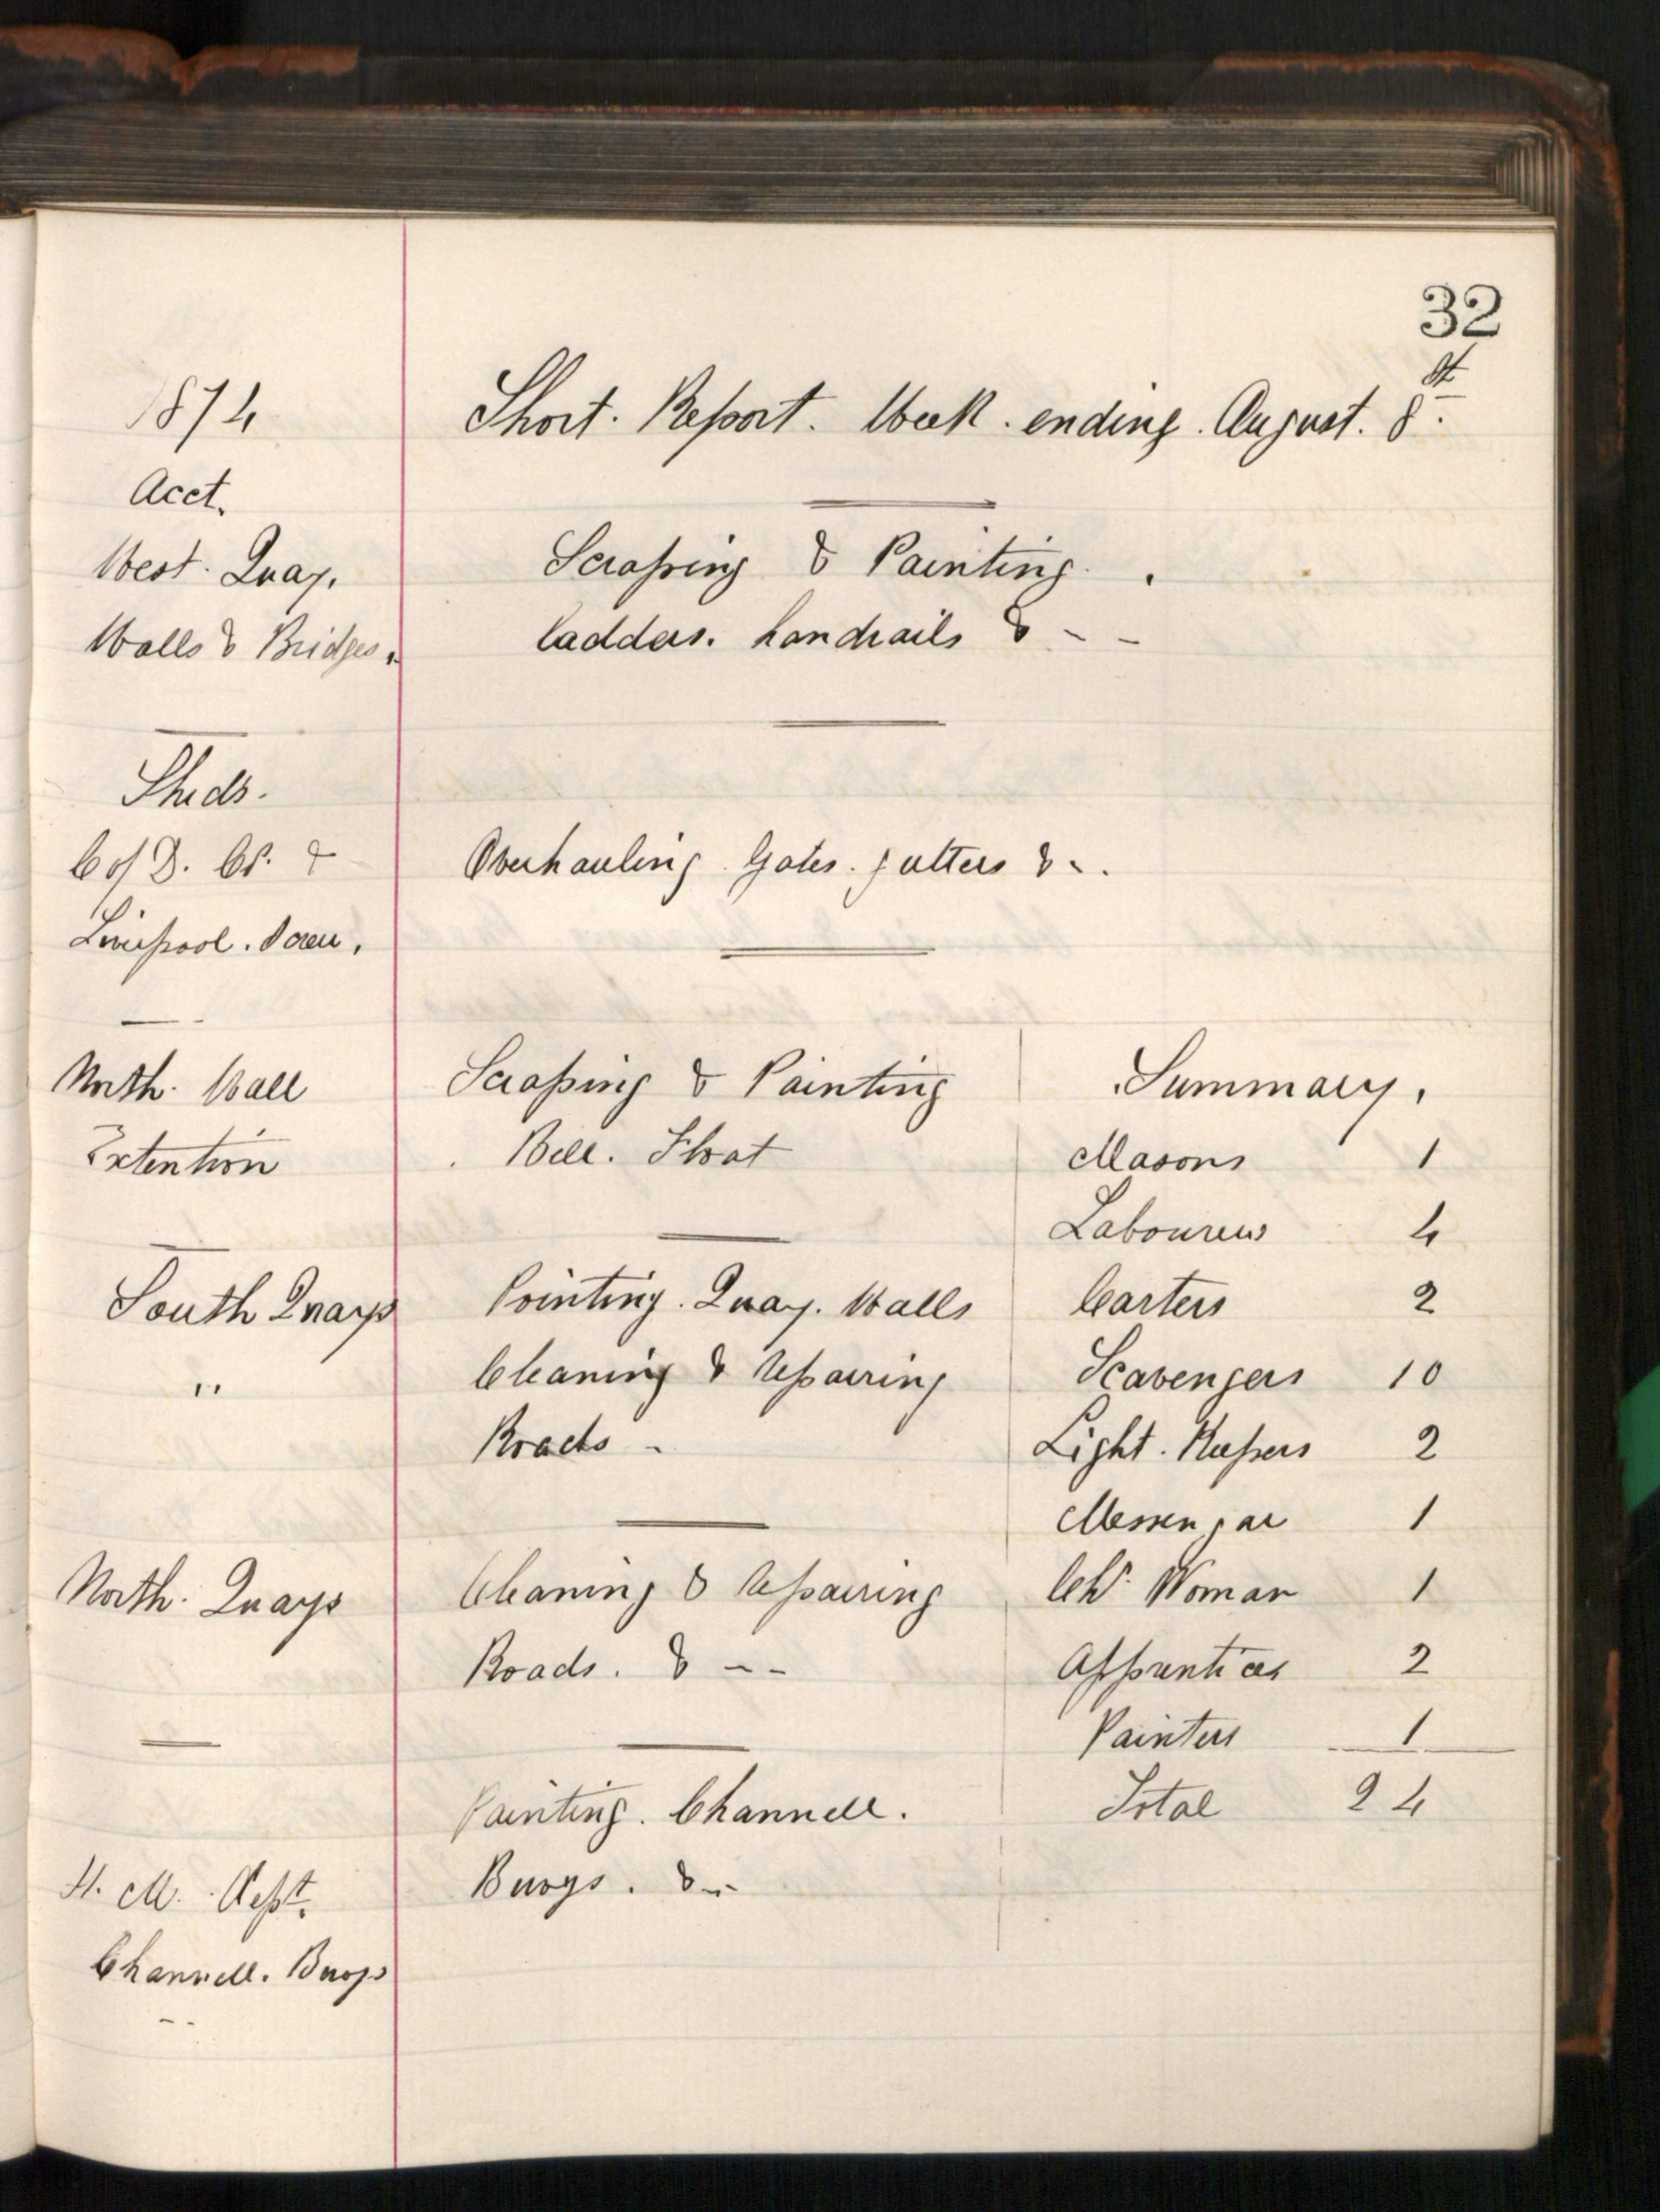 32
1874
Short. Report. Week. ending. August. 8th.
Acct.
West. Quay.
Walls & Bridges.
Scraping & Painting.
ladders. handrails & - -
Sheds.
C of D. Co. &
Liverpool. Scren.
Overhauling. Gates. gutters & -.
North. Wall
Extention
Scraping & Painting
Bell. Float
South Quays
"
Pointing. Quay. Walls
Cleaning & Repairing
Roads -
North. Quays
Cleaning & Repairing
Roads. & - -
H. M. Dept.
Channell. Buoys
Painting. Channell.
Buoys. & - -
Summary.
Masons 1
Labourers 4
Carters 2
Scavengers 10
Light. Keepers 2
Messenger 1
Ch. Woman 1
Apprentices 2
Painters 1
Total 24